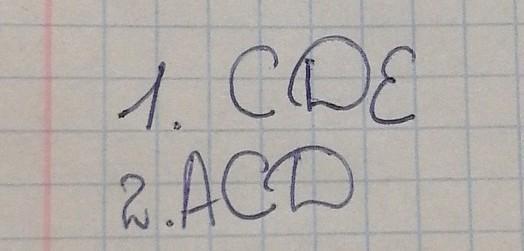 1. CDE
2. ACD